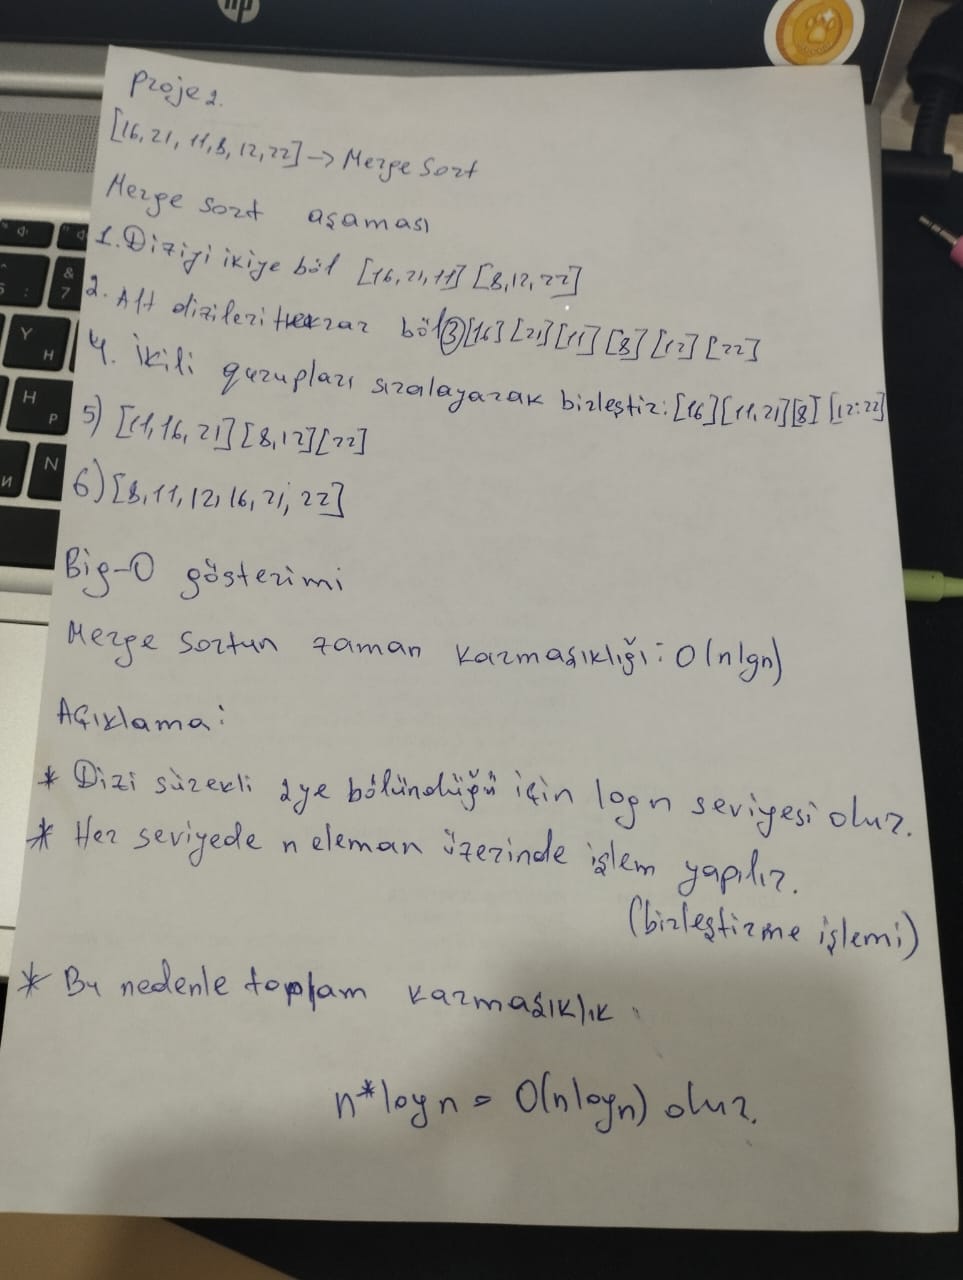 Proje 2.
[16, 21, 11, 8, 12, 22] -> Merge Sort
Merge Sort aşaması
1. Diziyi ikiye böl [16, 21, 11] [8, 12, 22]
2. Alt dizileri tekrar böl ③ [16] [21] [11] [8] [12] [22]
4. İkili gurupları sıralayarak birleştir: [16] [11, 21] [8] [12, 22]
5) [11, 16, 21] [8, 12] [22]
6) [8, 11, 12, 16, 21, 22]
Big-O gösterimi
Merge Sortun zaman karmaşıklığı: O(nlgn)
Açıklama:
* Dizi sürekli 2ye bölündüğü için logn seviyesi olur.
* Her seviyede n eleman üzerinde işlem yapılır.
(birleştirme işlemi)
* Bu nedenle toplam karmaşıklık
n*logn = O(nlogn) olur.
hp
& 7
Y H
H P
N